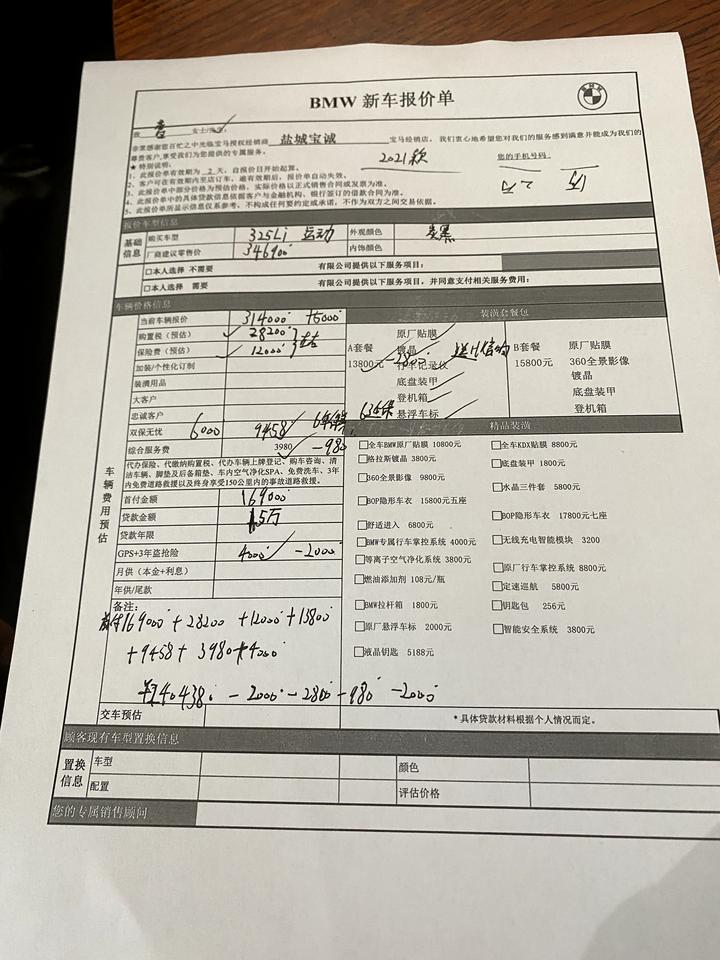 BMW 新车报价单
致 女士/先生:
非常感谢您百忙之中光临宝马授权经销商 盐城宝诚 宝马经销店。我们衷心地希望您对我们的服务感到满意并能成为我们的
尊贵客户,享受我们为您提供的专属服务。
★ 特别说明: 2021款 您的手机号码:
1、此报价单有效期为 2 天,自报价日开始起算。
2、客户可在有效期内至店订车,逾有效期后,报价单自动失效。
3、此报价单中部分价格为预估价格,实际价格以正式销售合同或发票为准。
4、此报价单中的具体贷款信息依据客户与金融机构、银行签订的借款合同为准。
5、此报价单所显示信息仅系参考,不构成任何要约或承诺,不作为双方之间交易依据。
报价车型信息
基础信息 购买车型 325Li 运动 外观颜色 炭黑
厂商建议零售价 346900 内饰颜色
□本人选择 不需要 有限公司提供以下服务项目:
□本人选择 需要 有限公司提供以下服务项目,并同意支付相关服务费用:
车辆价格信息 装潢套餐包
车辆费用预估
当前车辆报价 314000 +5000
购置税(预估) 28200
保险费(预估) 12000
加装/个性化订制
装潢用品
大客户
忠诚客户
双保无忧 6000 9458
综合服务费 3980 -980
A套餐 13800元 -2800
原厂贴膜
镀晶
行车记录仪
底盘装甲
登机箱
悬浮车标
B套餐 15800元
原厂贴膜
360全景影像
镀晶
底盘装甲
登机箱
代办保险、代缴纳购置税、代办车辆上牌登记、购车咨询、清
洁车辆、脚垫及后备箱垫、车内空气净化SPA、免费洗车、3年
内免费道路救援以及终身享受150公里内的事故道路救援。
首付金额 169000
贷款金额 15万
贷款年限
GPS+3年盗抢险 4000 -2000
月供(本金+利息)
年供/尾款
精品装潢
□全车BMW原厂贴膜 10800元 □全车KDX贴膜 8800元
□格拉斯镀晶 3800元 □底盘装甲 1800元
□360全景影像 9800元 □水晶三件套 5800元
□BOP隐形车衣 15800元五座 □BOP隐形车衣 17800元七座
□舒适进入 6800元
□BMW专属行车掌控系统 4000元 □无线充电智能模块 3200
□等离子空气净化系统 3800元 □原厂行车掌控系统 8800元
□燃油添加剂 108元/瓶 □定速巡航 5800元
□BMW拉杆箱 1800元 □钥匙包 256元
□原厂悬浮车标 2000元 □智能安全系统 3800元
□液晶钥匙 5188元
备注:
首付169000 + 28200 + 12000 + 13800
+ 9458 + 3980 + 4000
240438 - 2000 - 2800 - 980 - 2000
交车预估 *具体贷款材料根据个人情况而定。
顾客现有车型置换信息
置换信息 车型 颜色
配置 评估价格
您的专属销售顾问